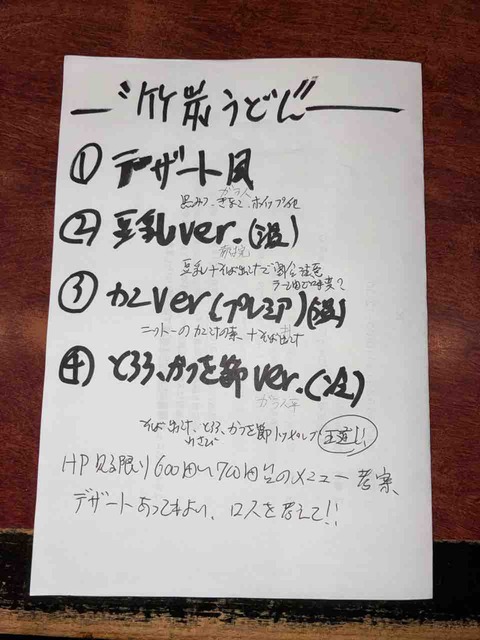 "竹炭うどん"
① デザート風
ガラス
黒みつ、きなこ、ホイップ他
② 豆乳ver.(温)
豆乳+そば出汁で割合注意
ラー油で味変?
③ カニver(プレミア)(温)
ニットーのカニの素 +そば出汁
④ とろろ、かつを節ver.(冷)
ガラス平
そば出汁、とろろ、かつを節 王道!!
わさび
HP見る限り600円〜700円台のメニュー考案、
デザートあってもよい、ロスを考えて!!